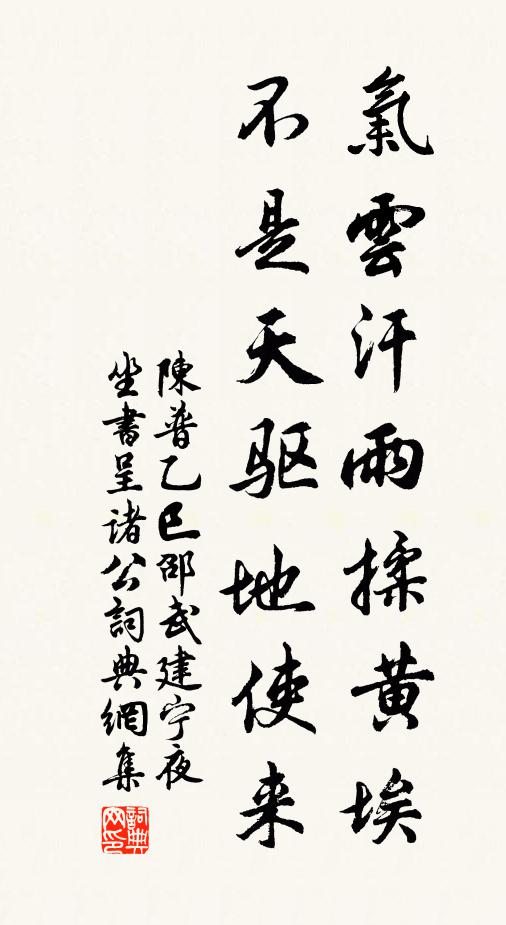 氣雲汗雨揉黄埃
不是天驱地使来
陳普乙巳邵武建宁夜
坐書呈诸公詞典網集
詞典网印